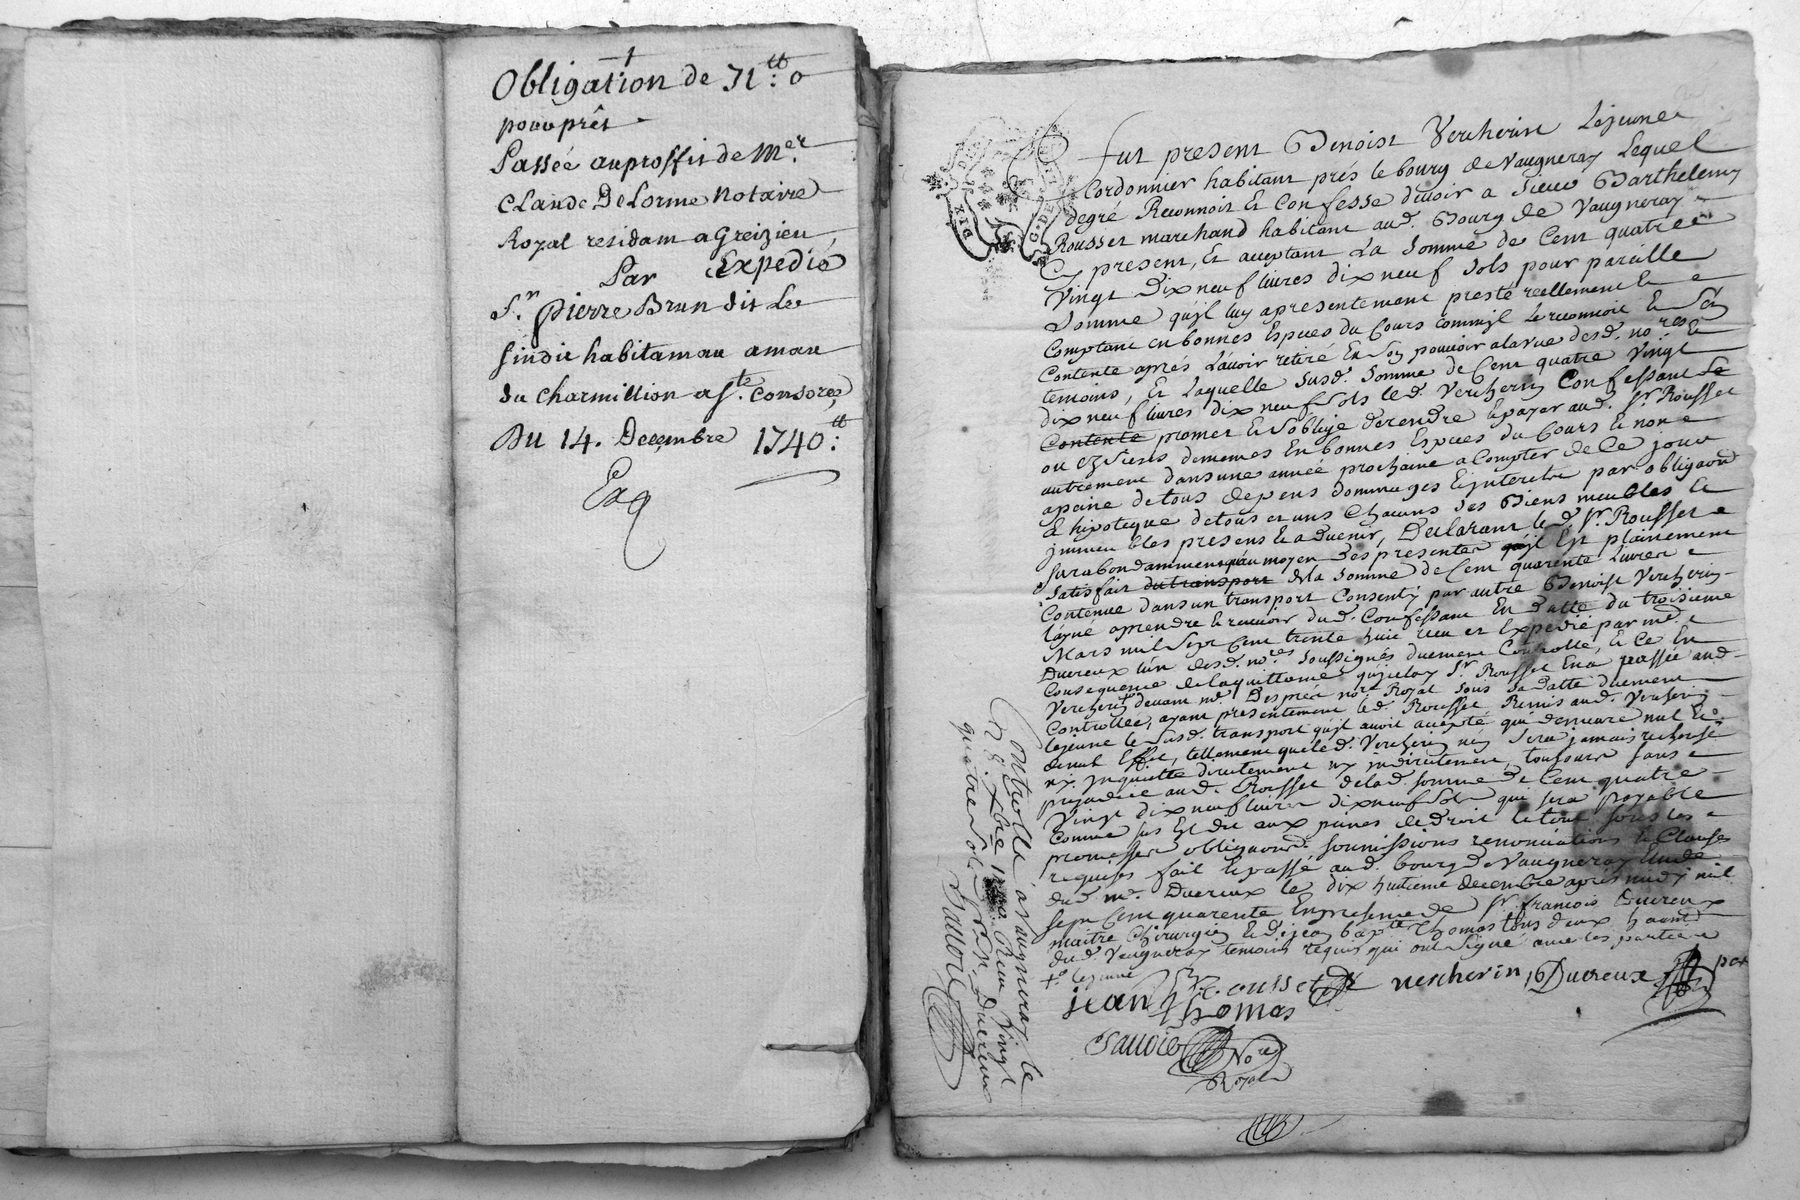 Obligation de 71.tt o
pour prêt
Passée au proffit de Mer.
Claude De Lorme Notaire
Royal residam a Greizieu
Par Expedié
Sr. pierre Brun dit Le
sindic habitam au amau
du charmillion a ste. consorce
Du 14. Decembre 1740:tt
Exq
Fut present Benoist Vercherin Lejeune
Cordonnier habitant prés le bourg de Vaugneray Lequel
degré Reconnoit Et Confesse devoir a Sieur Barthelemy
Rousset marchand habitant aud. Bourg de Vaugneray
Cy present, Et acceptant La Somme de Cent quatre
Vingt Dix neuf livres dix neuf Sols pour pareille
Somme qu'il luy a presentement presté reellement Et
Comptant en bonnes Especes du Cours comm'il Le reconnoit Et Sen
Contente aprés L'avoir retiré En Son pouvoir a la vue desd. nores. Et
temoins, Et Laquelle Susd. Somme de Cent quatre Vingt
dix neuf livres dix neuf Sols led. Vercherin Confessant Se
Contente promet Et S'oblige de rendre Et payer aud. Sr. Rousset
ou ez Siens dememes En bonnes Especes du Cours Et non
autrement dans une année prochaine a Compter de Ce jour
apeine detous depens dommages Et jnterets par obligaond
Et hipoteque detous et uns Chacuns Ses Biens meubles Et
jmmeubles presens Et advenir, Declarant le d. Sr. Rousset
Surabondamment qu'au moyen Des presentes qu'jl Est plainement
Satisfait du transport de la Somme de Cent quarente Livres
Contenue dans un transport Consenty par autre Benoist Vercherin
L'ayné a prendre Et recevoir dud. Confessant En datte du troisieme
Mars mil Sept Cent trente huit receu et Expedié par me.
Duereux L'un desd. nores. Soussignés duement Controllé, Et Ce En
Consequence de la quittance qu'jceluy Sr. Rousset En a passée aud.
Vercherin devant me. Desprée nore. Royal Sous Sa datte duement
Controllée, ayant presentement led. Rousset Remis aud. Vercherin
Lejeune le Susd. transport qu'jl avoit accepté qui demeure nul Et
denul Effet, tellement que led. Vercherin n'en Sera jamais recherché
ny jnquietté directement ny jndirectement, toujours Sans
prejudice aud. Rousset de lad. Somme de Cent quatre
Vingt dix neuf livres dix neuf Sols qui Sera payable
Comme Sus Est dit aux peines de droit Et tout Sous les
promesses obligaons. Soumissions renonciations Et Clauses
requises fait Et passé aud. bourg de Vaugneray Etude
dud. me. Duereux le dix huitieme decembre aprés midy mil
Sept Cent quarente En presence de Sr. francois Duereux
maitre Chirurgien Et de jean bapte. Thomas tous deux habitd.
dud. Vaugneray temoins requis qui ont Signé avec les parties
+ lejeune
Rousset vercherin Duereux
jean Thomas
Sauvice Nore
Royal
Controllé a Vaugneray le
22e. Xbre 1740. Receu Vingt
quatre Sols Duereux